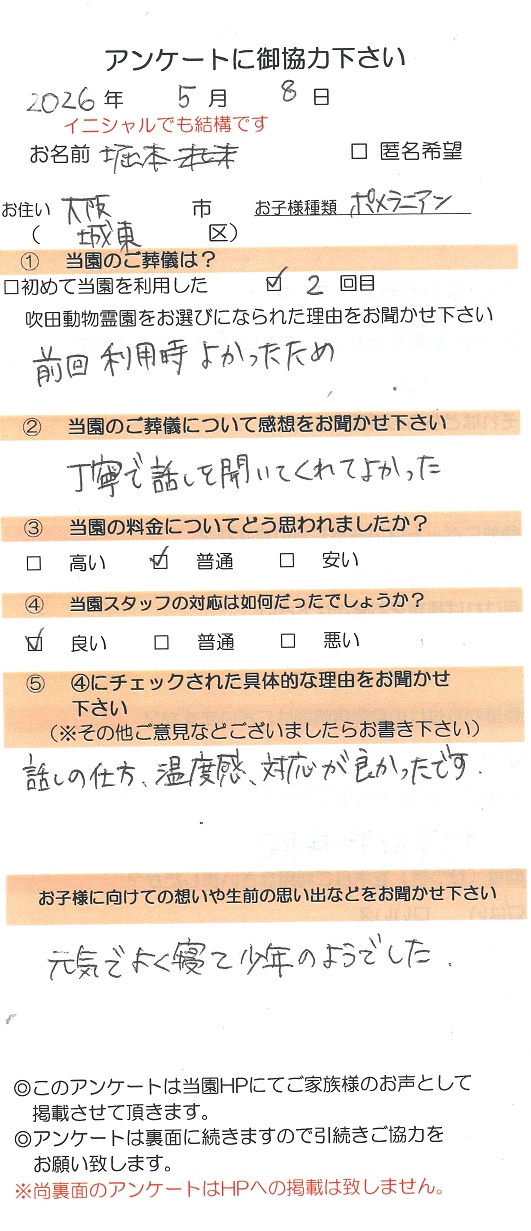 アンケートに御協力下さい
2026年 5月 8日
イニシャルでも結構です
お名前 堀本 □ 匿名希望
お住い 大阪 市 お子様種類 ポメラニアン
( 城東 区)
① 当園のご葬儀は？
□初めて当園を利用した ☑ 2 回目
吹田動物霊園をお選びになられた理由をお聞かせ下さい
前回利用時よかったため
② 当園のご葬儀について感想をお聞かせ下さい
丁寧で話しを聞いてくれてよかった
③ 当園の料金についてどう思われましたか？
□ 高い ☑ 普通 □ 安い
④ 当園スタッフの対応は如何だったでしょうか？
☑ 良い □ 普通 □ 悪い
⑤ ④にチェックされた具体的な理由をお聞かせ
下さい
（※その他ご意見などございましたらお書き下さい）
話しの仕方、温度感、対応が良かったです.
お子様に向けての想いや生前の思い出などをお聞かせ下さい
元気でよく寝て少年のようでした.
◎このアンケートは当園HPにてご家族様のお声として
掲載させて頂きます。
◎アンケートは裏面に続きますので引続きご協力を
お願い致します。
※尚裏面のアンケートはHPへの掲載は致しません。